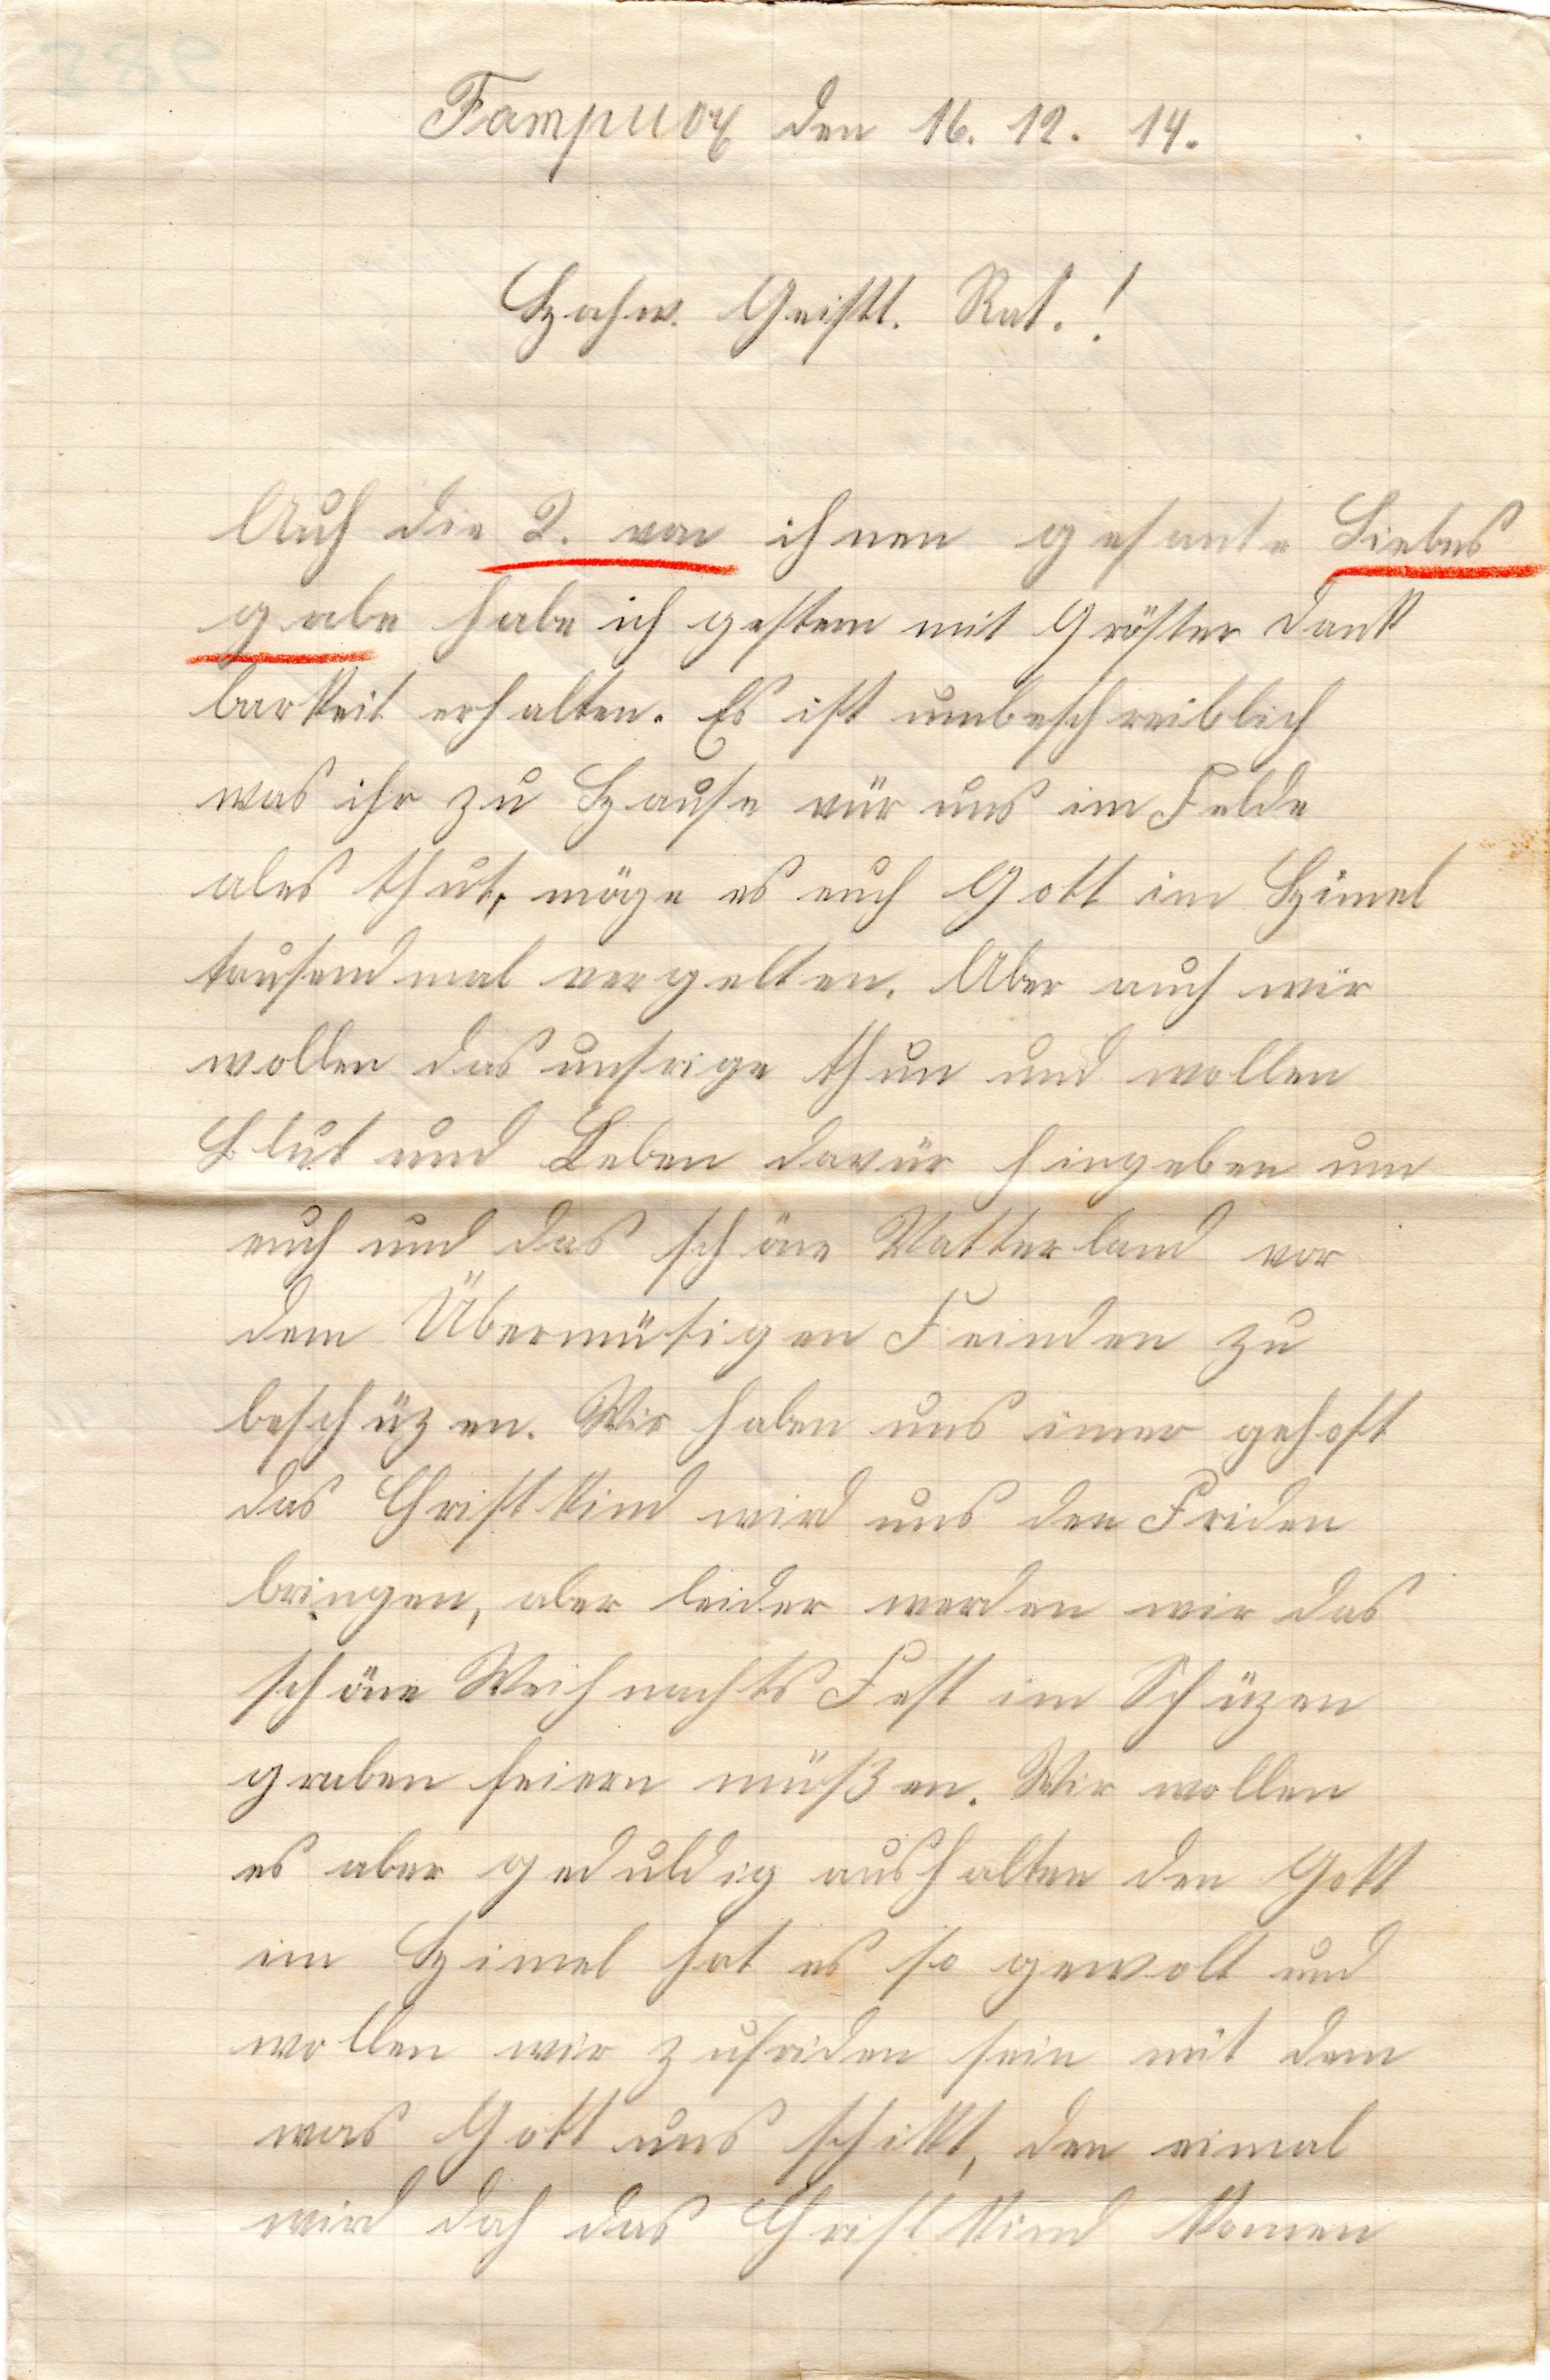 Fampuox den 16. 12. 14.
Hochw. Geistl. Rat.!
Auch die 2. von ihnen gesante Liebes
gabe habe ich gestern mit Gröster Dank
barkeit erhalten. Es ist umbeschreiblich
was ihr zu Hause vür uns im Felde
ales thut, möge es euch Gott im Himel
tausendmal vergelten. Aber auch wir
wollen das unsrige thun und wollen
Blut und Leben davür hingeben um
euch und das schöne Vatterland vor
dem Übermütigen Feinden zu
beschüzen. Wir haben uns imer gehoft
das Christkind wird uns den Friden
bringen, aber leider werden wir das
schöne Weihnachts Fest im Schüzen
graben feiern müßen. Wir wollen
es aber geduldig aushalten den Gott
im Himel hat es so gewolt und
wollen wir zufriden sein mit dem
was Gott uns schikt, den eimal
wird doch das Christkind komen